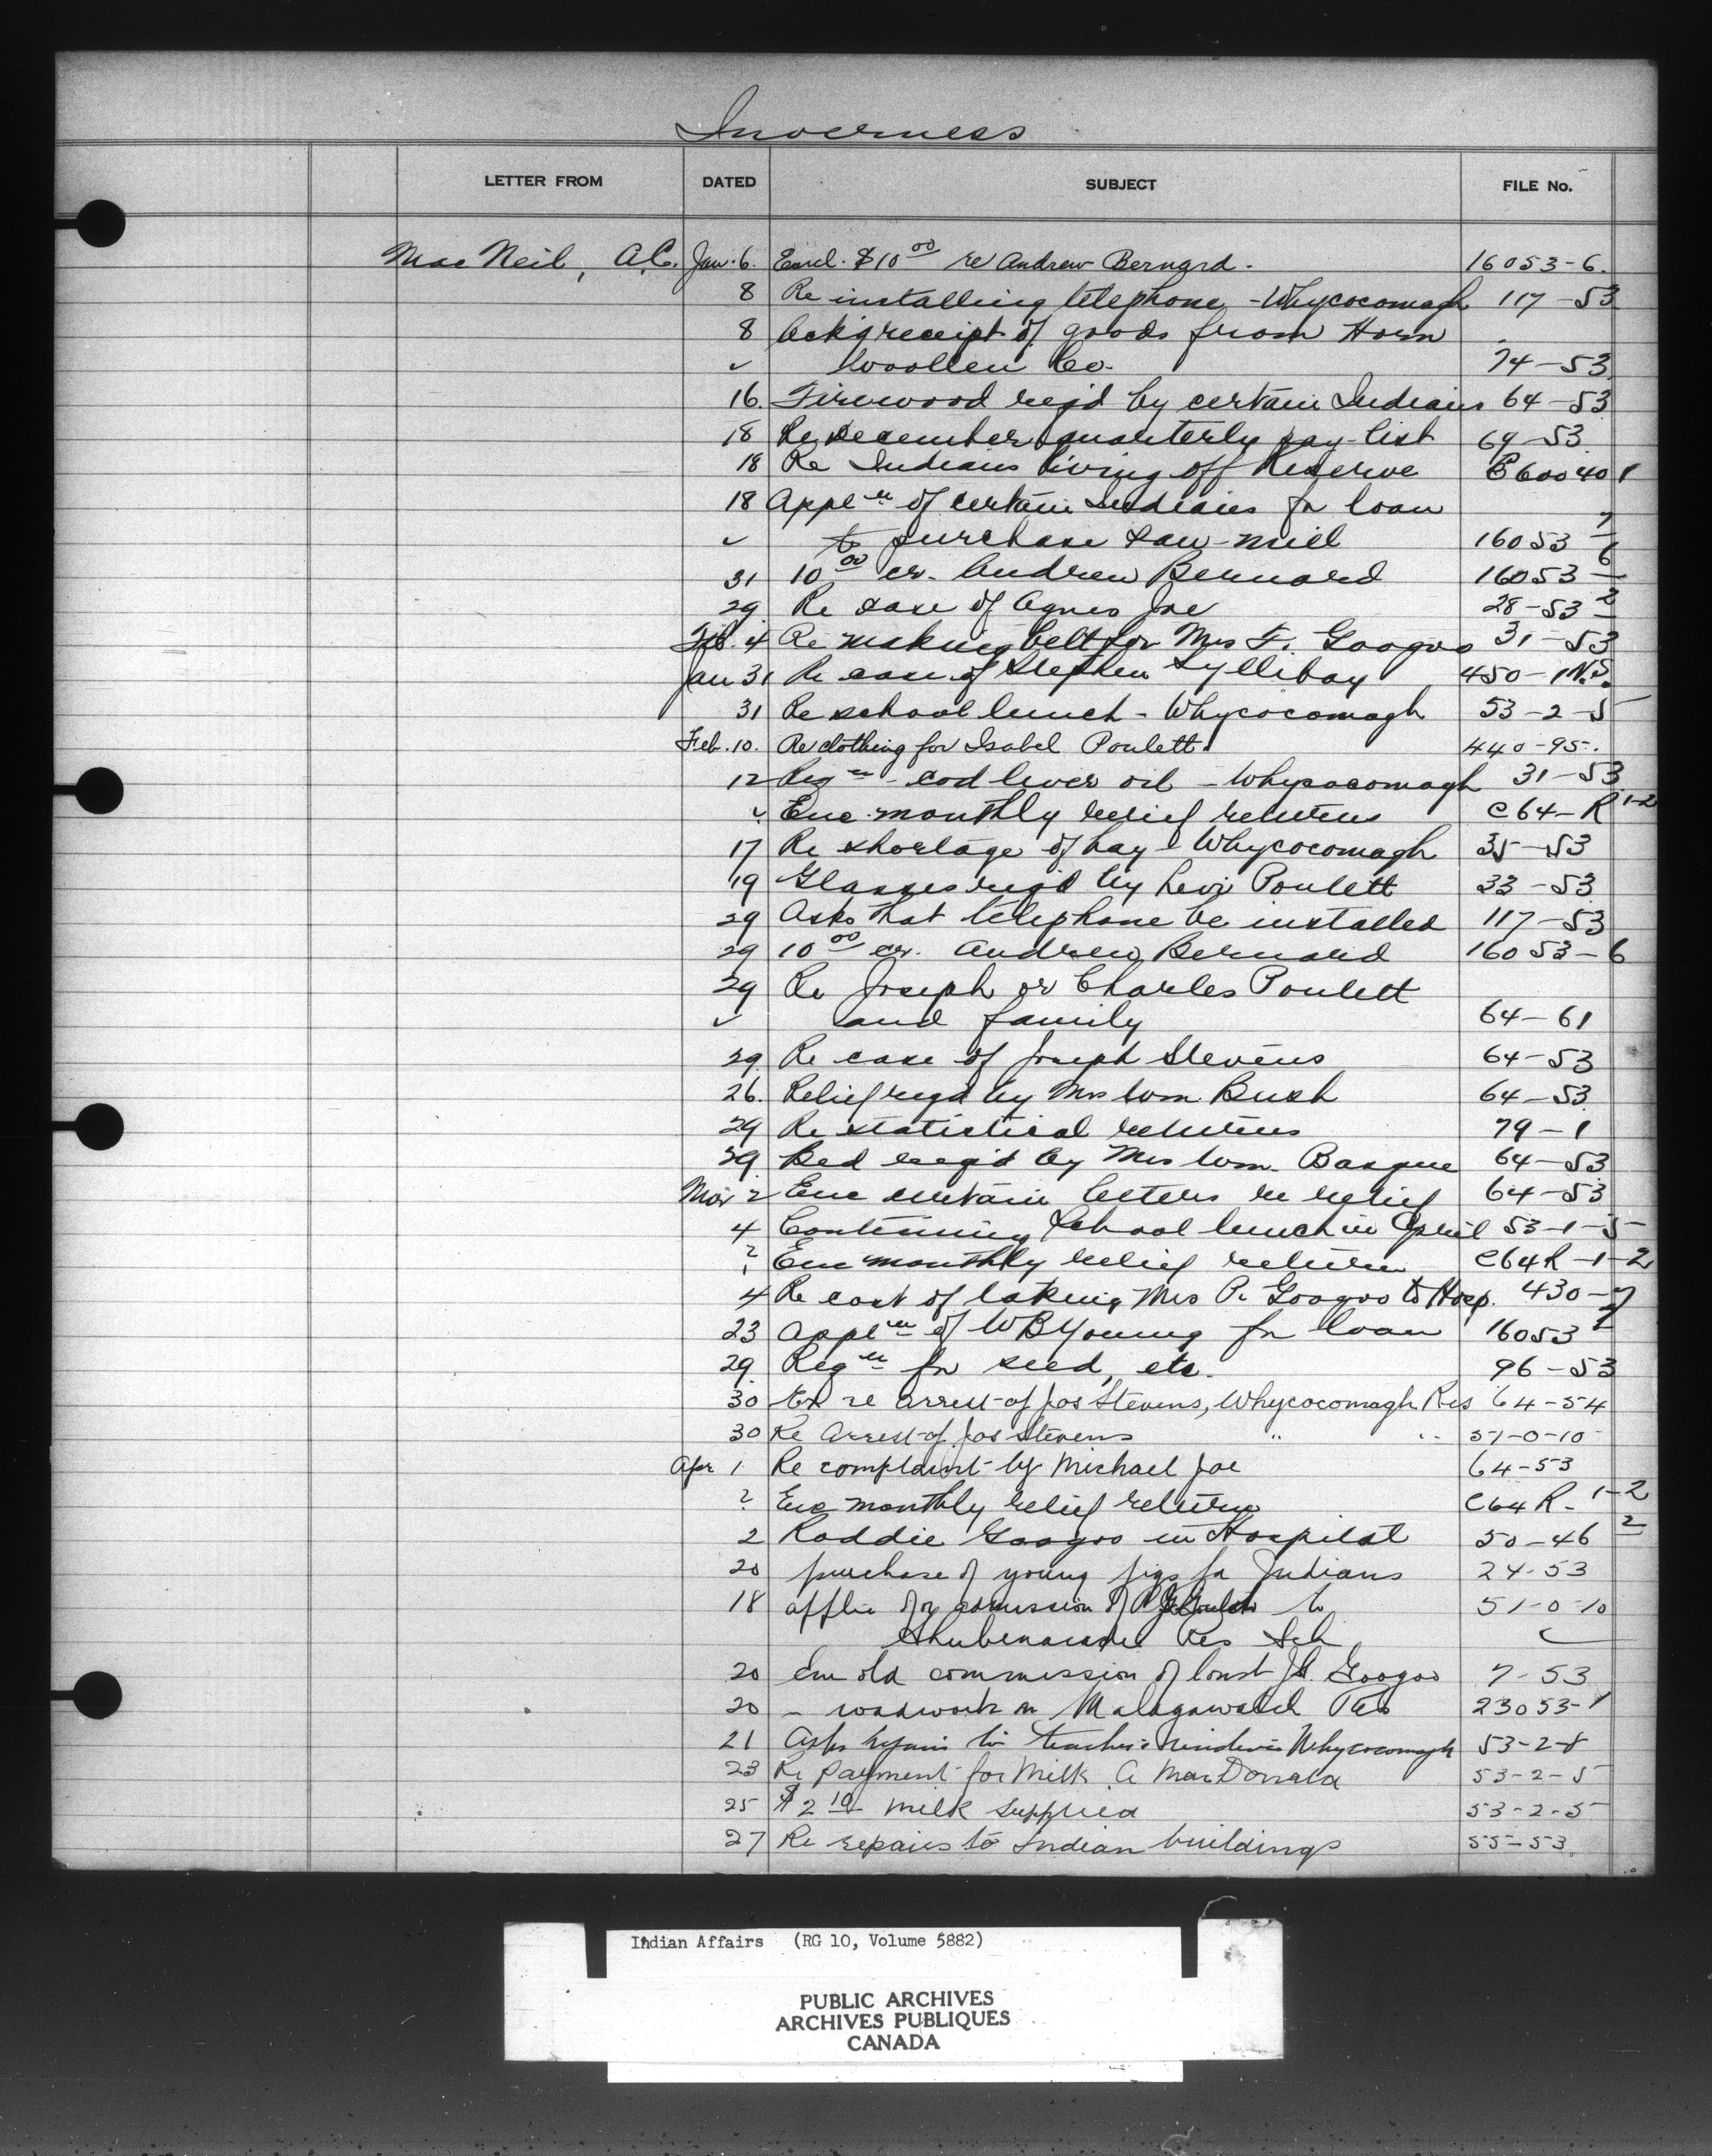 Inverness
LETTER FROM DATED SUBJECT FILE No.
MacNeil, A.C. Jan. 6. Encl. $10 00 re Andrew Bernard. 16053-6.
8 Re installing telephone - Whycocomagh 117-53
8 Ack'g receipt of goods from Horn
✓ Woollen Co. 74-53
16. Firewood req'd by certain Indians 64-53
18 Re December quarterly pay-list 69-53
18 Re Indians living off Reserve 60040 1
18 Appl'n of certain Indians for loan
✓ to purchase saw-mill 16053 7
31 10 00 cr. Andrew Bernard 16053 6
29 Re case of Agnes Joe 28-53 2
Feb. 4 Re making belt for Mrs F. Googoo 31-53
Jan 31 Re case of Stephen Syllibay 450-1 N.S.
31 Re school lunch - Whycocomagh 53-2-5
Feb. 10. Re clothing for Isabel Poulett. 440-95.
12 Req'n - cod liver oil - Whycocomagh 31-53
✓ Enc monthly relief returns C64-R 1-2
17 Re shortage of hay - Whycocomagh 35-53
19 Glasses req'd by Levi Poulett 33-53
29 Asks that telephone be installed 117-53
29 10 00 cr. Andrew Bernard 16053-6
29 Re Joseph or Charles Poulett
✓ and family 64-61
29 Re case of Joseph Stevens 64-53
26. Relief req'd by Mrs Wm Bush 64-53
29 Re statistical returns 79-1
29 Bed req'd by Mrs Wm. Basque 64-53
Mar 2 Enc certain letters re relief 64-53
4 Continuing School lunch in April 53-1-5
? Enc monthly relief return C64R-1-2
4 Re cost of taking Mrs P. Googoo to Hosp. 430-7
23 Appl'n of WB Young for loan 16053 7
29 Req'n for seed, etc. 96-53
30 re arrest of Jos Stevens, Whycocomagh Res 64-54
30 Re Arrest of Jos Stevens " " 51-0-10
Apr 1 Re complaint by Michael Joe 64-53
? Enc monthly relief return C64R-1-2
2 Roddie Googoo in Hospital 50-46 2
20 purchase of young pigs for Indians 24-53
18 applic for admission of to 51-0-10
Shubenacadie Res Sch ✓
20 Enc old commission of Const Googoo 7-53
20 - roadwork on Malagawatch Res 23053-1
21 Asks repairs to teacher's residence Whycocomagh 53-2-8
23 Re payment for Milk A MacDonald 53-2-5
25 $2 10 milk supplied 53-2-5
27 Re repairs to Indian buildings 55-53
Indian Affairs (RG 10, Volume 5882)
PUBLIC ARCHIVES
ARCHIVES PUBLIQUES
CANADA